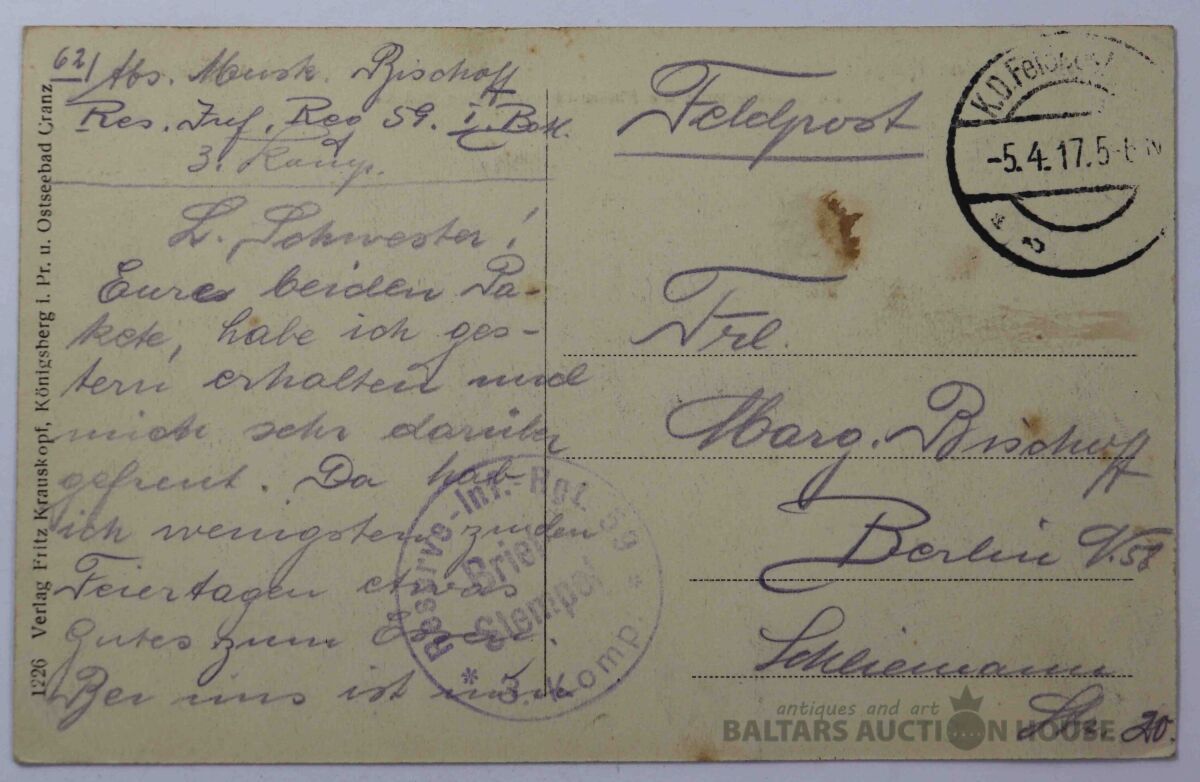 621
Abs. Musk. Bischoff
Res. Inf. Reg 59. I. Batl.
3. Komp.
L. Schwester!
Eure beiden Pa-
kete, habe ich ges-
tern erhalten und
mich sehr darüber
gefreut. Da hab
ich wenigstens zu den
Feiertagen etwas
Gutes zum Essen.
Bei uns ist
Reserve-Inf.-Rgt. 59
Brief
Stempel
* 3. Komp. *
Feldpost
K.D. Feldpost
-5.4.17.5-6 N
Frl.
Marg. Bischoff
Berlin N. 58
Schliemann
Str. 20.
1226 Verlag Fritz Krauskopf, Königsberg i. Pr. u. Ostseebad Cranz
antiques and art
BALTARS AUCTION HOUSE